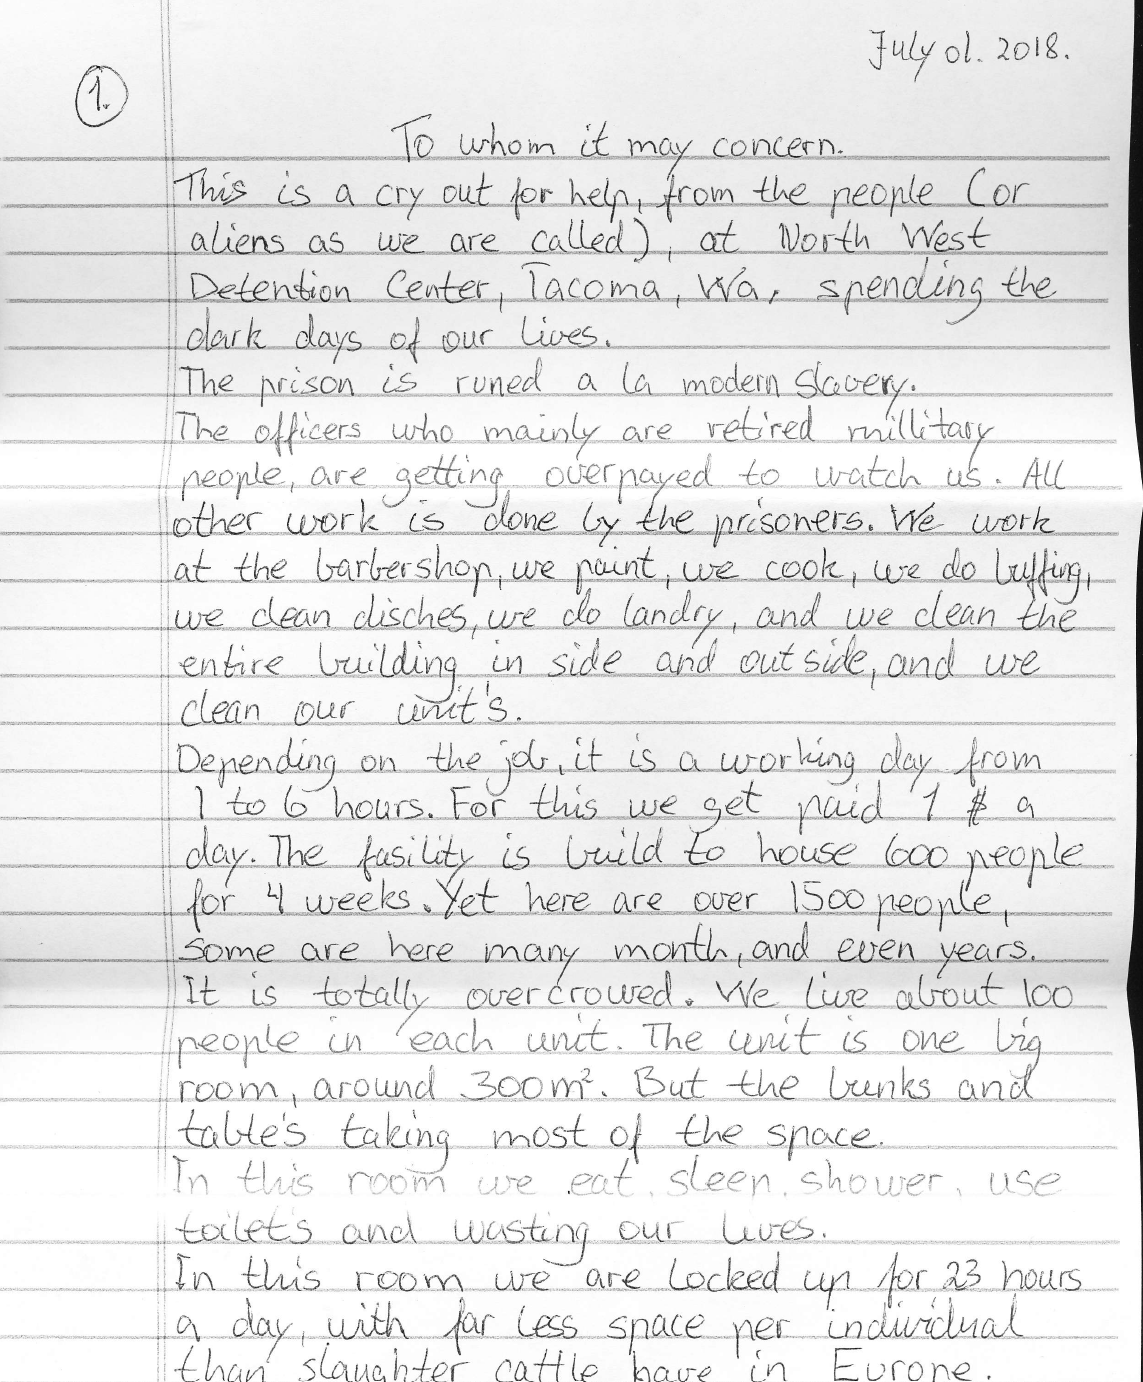 July 01. 2018.
1.
To whom it may concern.
This is a cry out for help, from the people (or
aliens as we are called), at North West
Detention Center, Tacoma, Wa, spending the
dark days of our lives.
The prison is runed a la modern slavery.
The officers who mainly are retired millitary
people, are getting overpayed to watch us. All
other work is done by the prisoners. We work
at the barbershop, we paint, we cook, we do buffing,
we clean disches, we do landry, and we clean the
entire building in side and out side, and we
clean our unit's.
Depending on the job, it is a working day from
1 to 6 hours. For this we get paid 1 $ a
day. The fasility is build to house 600 people
for 4 weeks. Yet here are over 1500 people,
some are here many month, and even years.
It is totally over crowed. We live about 100
people in each unit. The unit is one big
room, around 300m². But the bunks and
table's taking most of the space.
In this room we eat, sleep, shower, use
toilet's and wasting our lives.
In this room we are locked up for 23 hours
a day, with far less space per individual
than slaughter cattle have in Europe.